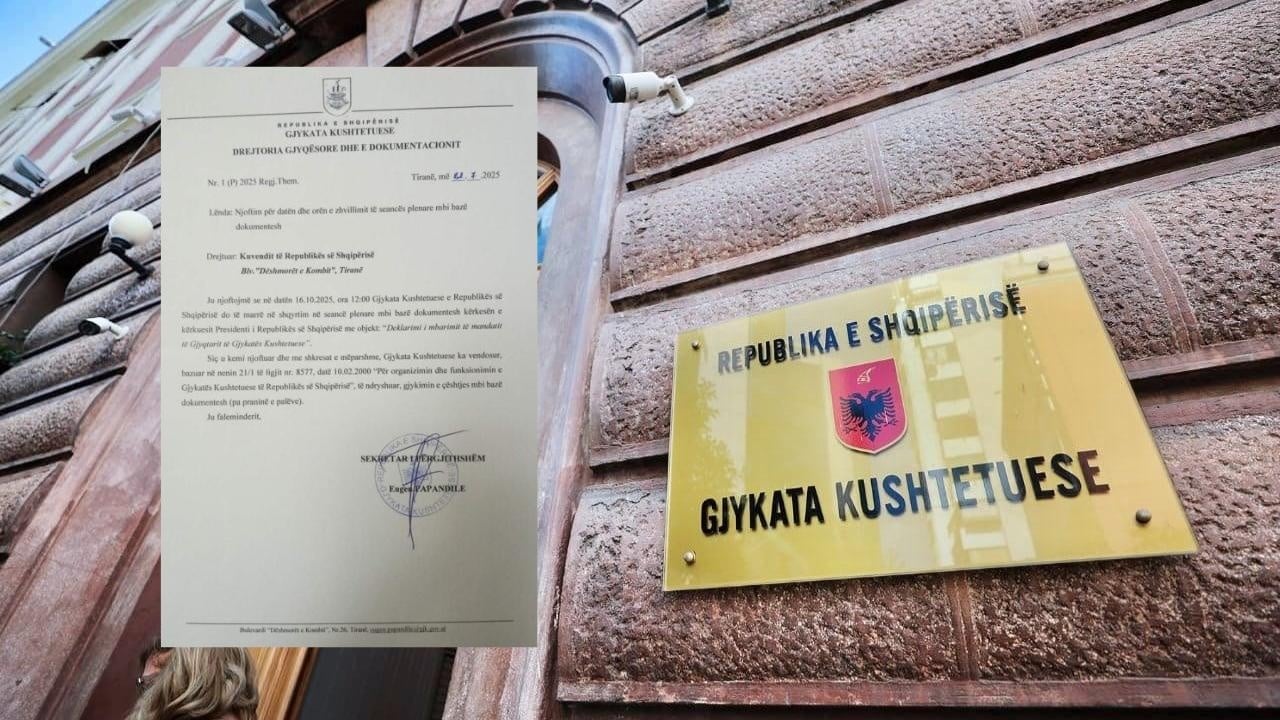 REPUBLIKA E SHQIPËRISË
GJYKATA KUSHTETUESE
DREJTORIA GJYQËSORE DHE E DOKUMENTACIONIT
Nr. 1 (P) 2025 Regj.Them.
Tiranë, më .7.2025
Lënda: Njoftim për datën dhe orën e zhvillimit të seancës plenare mbi bazë
dokumentesh
Drejtuar: Kuvendit të Republikës së Shqipërisë
Blv."Dëshmorët e Kombit", Tiranë
Ju njoftojmë se në datën 16.10.2025, ora 12:00 Gjykata Kushtetuese e Republikës së
Shqipërisë do të marrë në shqyrtim në seancë plenare mbi bazë dokumentesh kërkesën e
kërkuesit Presidenti i Republikës së Shqipërisë me objekt: "Deklarimi i mbarimit të mandatit
të Gjyqtarit të Gjykatës Kushtetuese".
Siç u kemi njoftuar dhe me shkresat e mëparshme, Gjykata Kushtetuese ka vendosur,
bazuar në nenin 21/1 të ligjit nr. 8577, datë 10.02.2000 "Për organizimin dhe funksionimin e
Gjykatës Kushtetuese të Republikës së Shqipërisë", të ndryshuar, gjykimin e çështjes mbi bazë
dokumentesh (pa praninë e palëve).
Ju faleminderit,
SEKRETAR I PËRGJITHSHËM
Eugen PAPANDILE
Bulevardi "Dëshmorët e Kombit", Nr.26, Tiranë, eugen.papandile@gjk.gov.al
REPUBLIKA E SHQIPËRISË
GJYKATA KUSHTETUESE